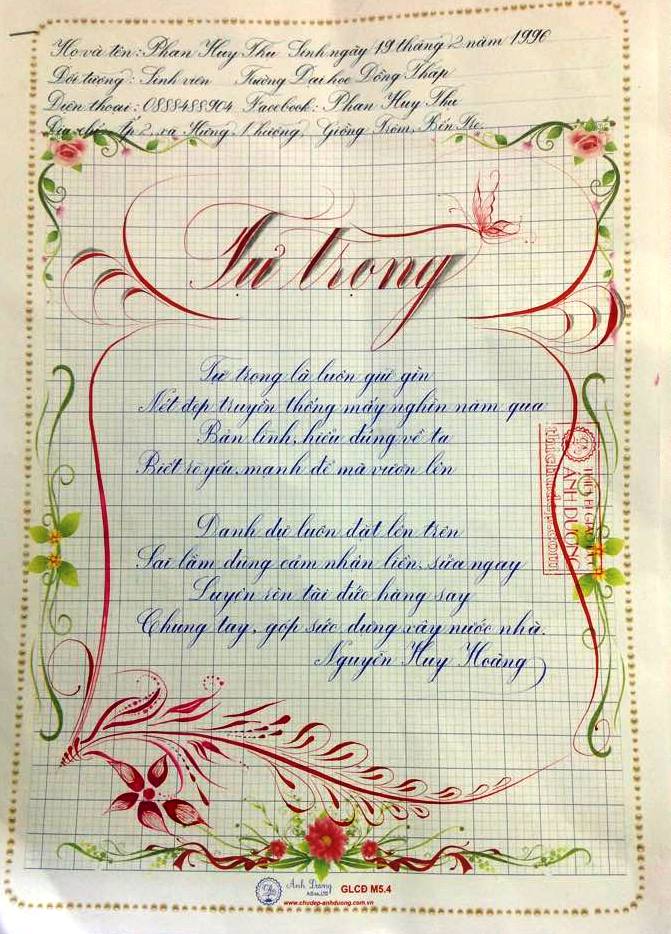 Họ và tên: Phan Huy Thu Sinh ngày 19 tháng 2 năm 1996
Đối tượng: Sinh viên Trường Đại học Đồng Tháp
Điện thoại: 0888488904 Facebook: Phan Huy Thu
Địa chỉ: Ấp 2, xã Hưng Nhượng, Giồng Trôm, Bến Tre.
Tự trọng
Tự trọng là luôn giữ gìn
Nét đẹp truyền thống mấy nghìn năm qua
Bản lĩnh, hiểu đúng về ta
Biết rõ yếu, mạnh để mà vươn lên
Danh dự luôn đặt lên trên
Sai lầm dũng cảm nhận liền, sửa ngay
Luyện rèn tài đức hăng say
Chung tay, góp sức dựng xây nước nhà.
Nguyễn Huy Hoàng
ÁNH DƯƠNG
Ánh Dương
GLCĐ M5.4
www.chudep-anhduong.com.vn